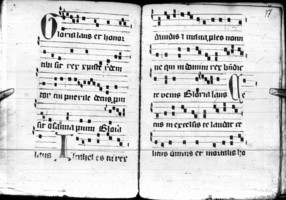 Gloria laus et honor
tibi sit rex xpiste redem
tor cui puerile decus pm
sit osanna pium Gloria
laus Israhel es tu rex
17
dauidis et inclita ples nomi
ne qui in domini rex bndic
te venis Gloria laus Ce
tus in excelsis te laudat ce
licus omnis et mortalis ho